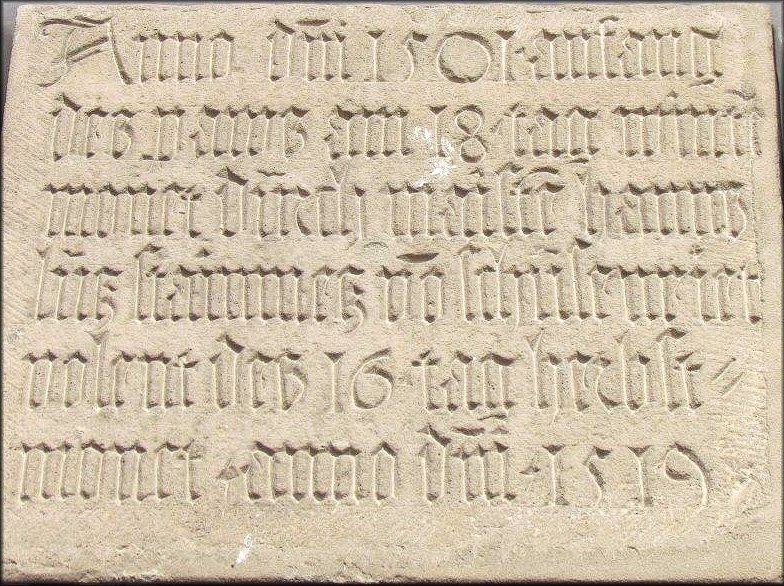 Anno dm̄ 1501 anfang
des paws am 18 tag winter
monet durch maister hanns
lutz stainmetz vō schussenriet
volent des 16 tag herbst
monet anno dm̄ 1519